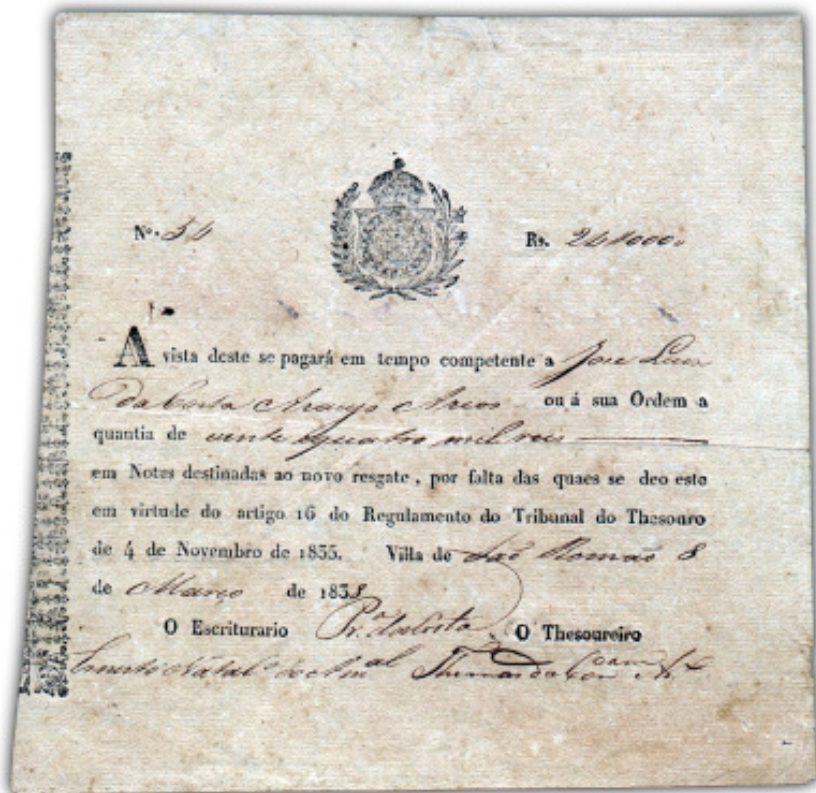 Nº. 54 Rs. 24$000
A vista deste se pagará em tempo competente a Joze Luis
da Costa Araujo Arcos ou á sua Ordem a
quantia de vinte e quatro mil reis
em Notas destinadas ao novo resgate, por falta das quaes se deo este
em virtude do artigo 16 do Regulamento do Tribunal do Thesouro
de 4 de Novembro de 1835. Villa de Saõ Romaõ 8
de Março de 1838
O Escriturario O Thesoureiro